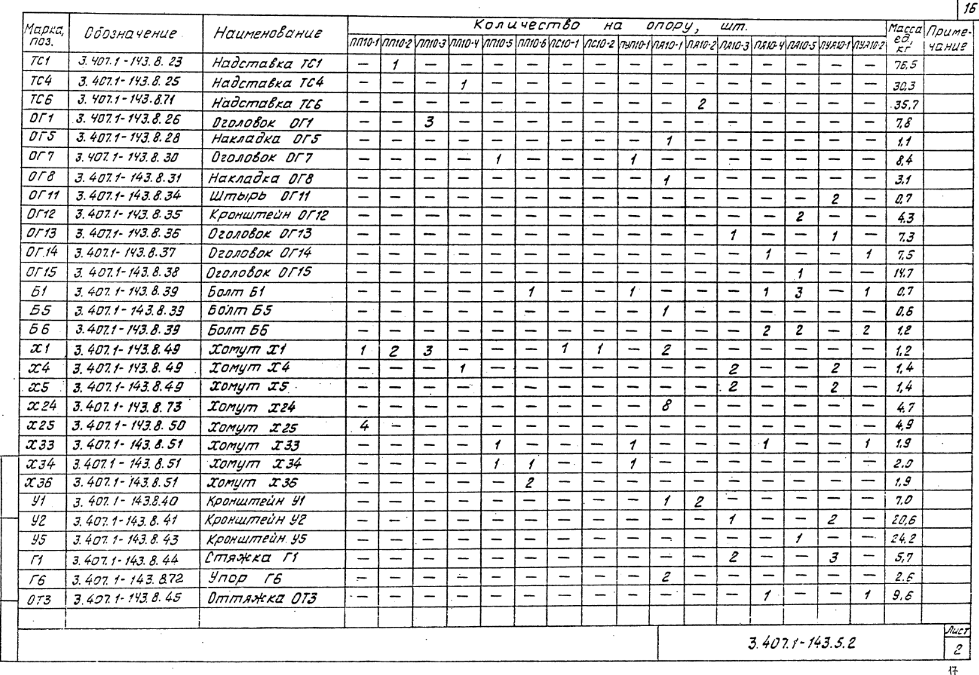 16
Марка, поз. Обозначение Наименование Количество на опору, шт. Масса ед. кг Приме-чание
ПП10-1 ПП10-2 ПП10-3 ПП10-4 ПП10-5 ПП10-6 ПС10-1 ПС10-2 ПУП10-1 ПА10-1 ПА10-2 ПА10-3 ПА10-4 ПА10-5 ПУА10-1 ПУА10-2
ТС1 3.407.1-143.8.23 Надставка ТС1 — 1 — — — — — — — — — — — — — — 76,5
ТС4 3.407.1-143.8.25 Надставка ТС4 — — — 1 — — — — — — — — — — — — 30,3
ТС6 3.407.1-143.8.71 Надставка ТС6 — — — — — — — — — — 2 — — — — — 35,7
ОГ1 3.407.1-143.8.26 Оголовок ОГ1 — — 3 — — — — — — — — — — — — — 7,8
ОГ5 3.407.1-143.8.28 Накладка ОГ5 — — — — — — — — — 1 — — — — — — 1,1
ОГ7 3.407.1-143.8.30 Оголовок ОГ7 — — — — 1 — — — 1 — — — — — — — 8,4
ОГ8 3.407.1-143.8.31 Накладка ОГ8 — — — — — — — — — 1 — — — — — — 3,1
ОГ11 3.407.1-143.8.34 Штырь ОГ11 — — — — — — — — — — — — — — 2 — 0,7
ОГ12 3.407.1-143.8.35 Кронштейн ОГ12 — — — — — — — — — — — — — 2 — — 4,3
ОГ13 3.407.1-143.8.36 Оголовок ОГ13 — — — — — — — — — — — 1 — — 1 — 7,3
ОГ.14 3.407.1-143.8.37 Оголовок ОГ14 — — — — — — — — — — — — 1 — — 1 7,5
ОГ15 3.407.1-143.8.38 Оголовок ОГ15 — — — — — — — — — — — — — 1 — — 14,7
Б1 3.407.1-143.8.39 Болт Б1 — — — — — 1 — — 1 — — — 1 3 — 1 0,7
Б5 3.407.1-143.8.39 Болт Б5 — — — — — — — — — 1 — — — — — — 0,6
Б6 3.407.1-143.8.39 Болт Б6 — — — — — — — — — — — — 2 2 — 2 1,2
Х1 3.407.1-143.8.49 Хомут Х1 1 2 3 — — — 1 1 — 2 — — — — — — 1,2
Х4 3.407.1-143.8.49 Хомут Х4 — — — 1 — — — — — — — 2 — — 2 — 1,4
Х5 3.407.1-143.8.49 Хомут Х5 — — — — — — — — — — — 2 — — 2 — 1,4
Х24 3.407.1-143.8.73 Хомут Х24 — — — — — — — — — 8 — — — — — — 4,7
Х25 3.407.1-143.8.50 Хомут Х25 4 — — — — — — — — — — — — — — — 4,9
Х33 3.407.1-143.8.51 Хомут Х33 — — — — 1 — — — 1 — — — 1 — — 1 1,9
Х34 3.407.1-143.8.51 Хомут Х34 — — — — 1 1 — — 1 — — — — — — — 2,0
Х36 3.407.1-143.8.51 Хомут Х36 — — — — — 2 — — — — — — — — — — 1,9
У1 3.407.1-143.8.40 Кронштейн У1 — — — — — — — — — 1 2 — — — — — 7,0
У2 3.407.1-143.8.41 Кронштейн У2 — — — — — — — — — — — 1 — — 2 — 20,6
У5 3.407.1-143.8.43 Кронштейн У5 — — — — — — — — — — — — — 1 — — 24,2
Г1 3.407.1-143.8.44 Стяжка Г1 — — — — — — — — — — — 2 — — 3 — 5,7
Г6 3.407.1-143.8.72 Упор Г6 — — — — — — — — — 2 — — — — — — 2,6
ОТ3 3.407.1-143.8.45 Оттяжка ОТ3 — — — — — — — — — — — — 1 — — 1 9,6
3.407.1-143.5.2 Лист 2
17